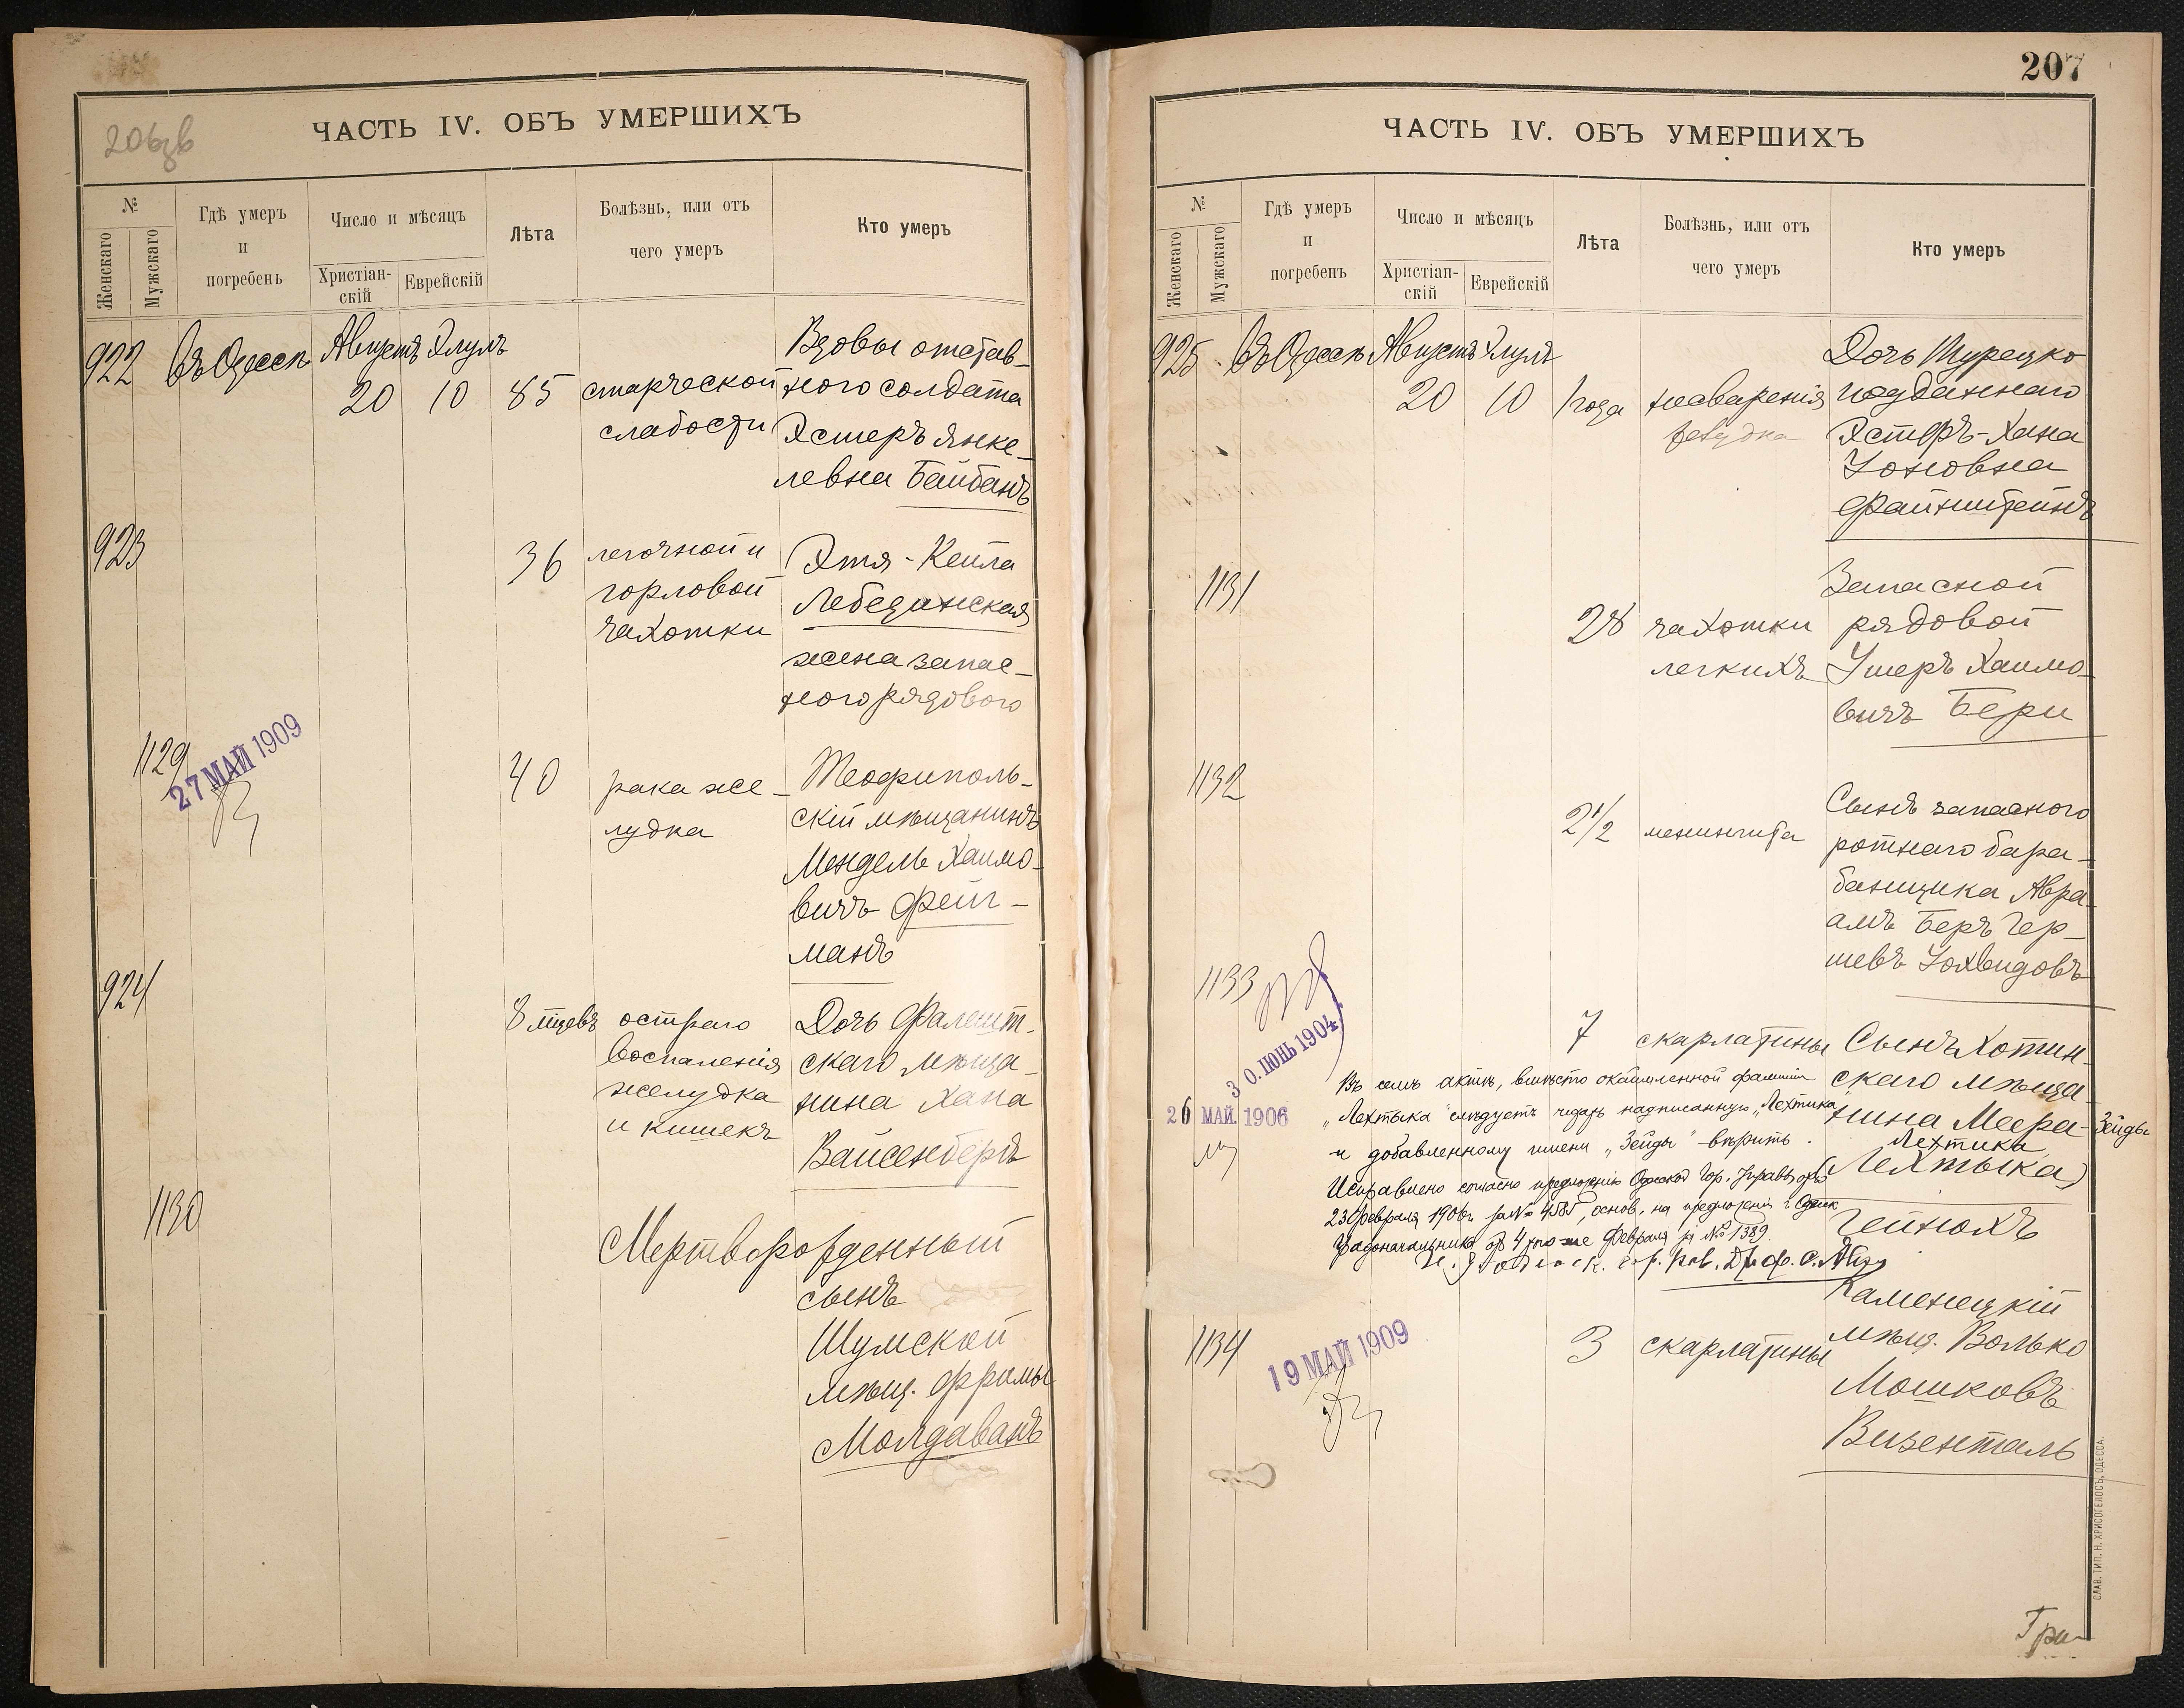 206зв
ЧАСТЬ IV. ОБЪ УМЕРШИХЪ
№
Женскаго
Мужскаго
Гдѣ умеръ
и
погребенъ
Число и мѣсяцъ
Христіан-
скій
Еврейскій
Лѣта
Болѣзнь, или отъ
чего умеръ
Кто умеръ
922 Въ Одессѣ Августъ Элулъ
20 10 85
старческой
слабости
Вдовы отстав-
ного солдата
Эстеръ Янке-
левна Байбанъ
923
36
легочной и
горловой
чахотки
Этя-Кейла
Лебединская
жена запас-
ного рядового
1129
27 МАЙ 1909
40
рака же-
лудка
Теофиполь-
скій мѣщанинъ
Мендель Хаимо-
вичъ Фейг-
манъ
924
8 мцевъ
остраго
воспаленія
желудка
и кишекъ
Дочь Фалешт-
скаго мѣща-
нина Хана
Вайсенбергъ
1130
Мертворожденный
сынъ
Шумской
мѣщ. Фрамы
Молдаванъ
207
ЧАСТЬ IV. ОБЪ УМЕРШИХЪ
№
Женскаго
Мужскаго
Гдѣ умеръ
и
погребенъ
Число и мѣсяцъ
Христіан-
скій
Еврейскій
Лѣта
Болѣзнь, или отъ
чего умеръ
Кто умеръ
925 Въ Одессѣ Августъ Элулъ
20 10 1 года
несваренія
желудка
Дочь Турецко
подданнаго
Эстеръ-Хана
Уоновна
Файнштейнъ
1131
28
чахотки
легкихъ
Запасной
рядовой
Ушеръ Хаимо-
вичъ Бери
1132
2 1/2
менингита
Сынъ запасного
ротнаго бара-
банщика Авра-
амъ Беръ Гер-
шевъ Уохвидовъ
1133
30. ІЮНЬ 1904
26 МАЙ. 1906
7
скарлатины
Сынъ Хотин-
скаго мѣща-
нина Меера-Зейды
Лехтика
(Лехтыка)
Гейнохъ
Въ семъ актѣ, вмѣсто окаймленной фамиліи
„Лехтыка" слѣдуетъ читать надписанную „Лехтика
и добавленному имени „Зейды" - вѣрить.
Исправлено согласно предложенію Одесской Гор. Управы отъ
23 Февраля 1906г. за № 4585, основ. на предложеніи г. Одеск
Градоначальника отъ 4 того-же Февраля за № 1389.
1134
19 МАЙ 1909
3
скарлатины
Каменецкій
мѣщ. Волько
Мошковъ
Визенталь
СЛАВ. ТИП. Н. ХРИСОГЕЛОСЪ, ОДЕССА.